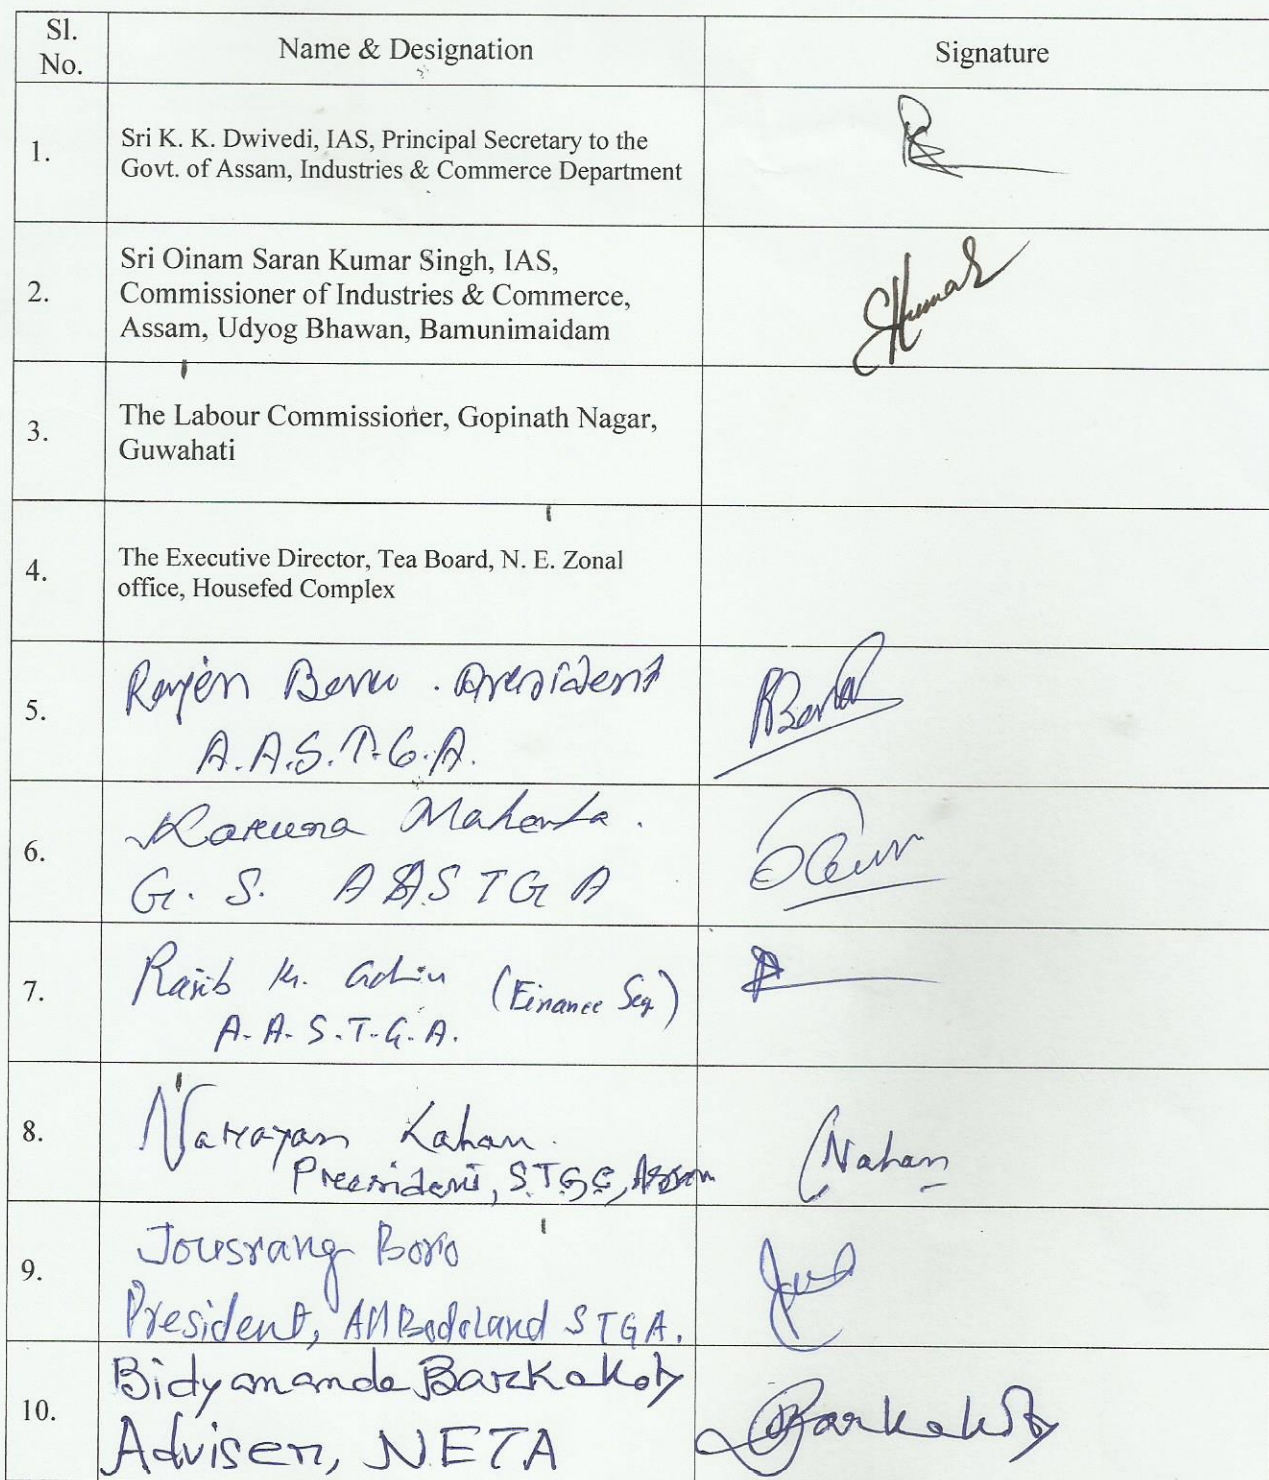 Sl.
No.
Name & Designation
Signature
1.
Sri K. K. Dwivedi, IAS, Principal Secretary to the
Govt. of Assam, Industries & Commerce Department
2.
Sri Oinam Saran Kumar Singh, IAS,
Commissioner of Industries & Commerce,
Assam, Udyog Bhawan, Bamunimaidam
SKumar
3.
The Labour Commissioner, Gopinath Nagar,
Guwahati
4.
The Executive Director, Tea Board, N. E. Zonal
office, Housefed Complex
5.
President
A.A.S.T.G.A.
6.
Karuna Mahanta.
G. S. AASTGA
7.
(Finance Secy)
A.A.S.T.G.A.
8.
Narayan Kahan.
President, Assam
9.
Jousrang Boro
President, All Bodoland STGA.
10.
Bidyananda Barkakoty
Adviser, NETA
Barkakoty